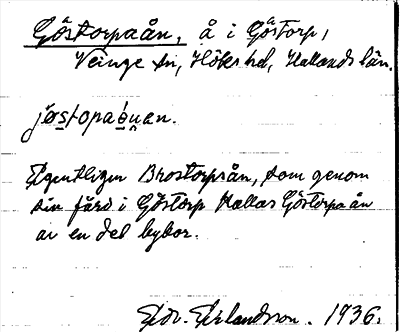 Göstorpaån, å i Göstorp,
Veinge sn, Höks hd, Hallands län.
jøstopaǫuan.
Egentligen Brostorpsån, som genom
sin färd i Göstorp kallas Göstorpaån
av en del bybor.
Edv. Erlandsson. 1936.